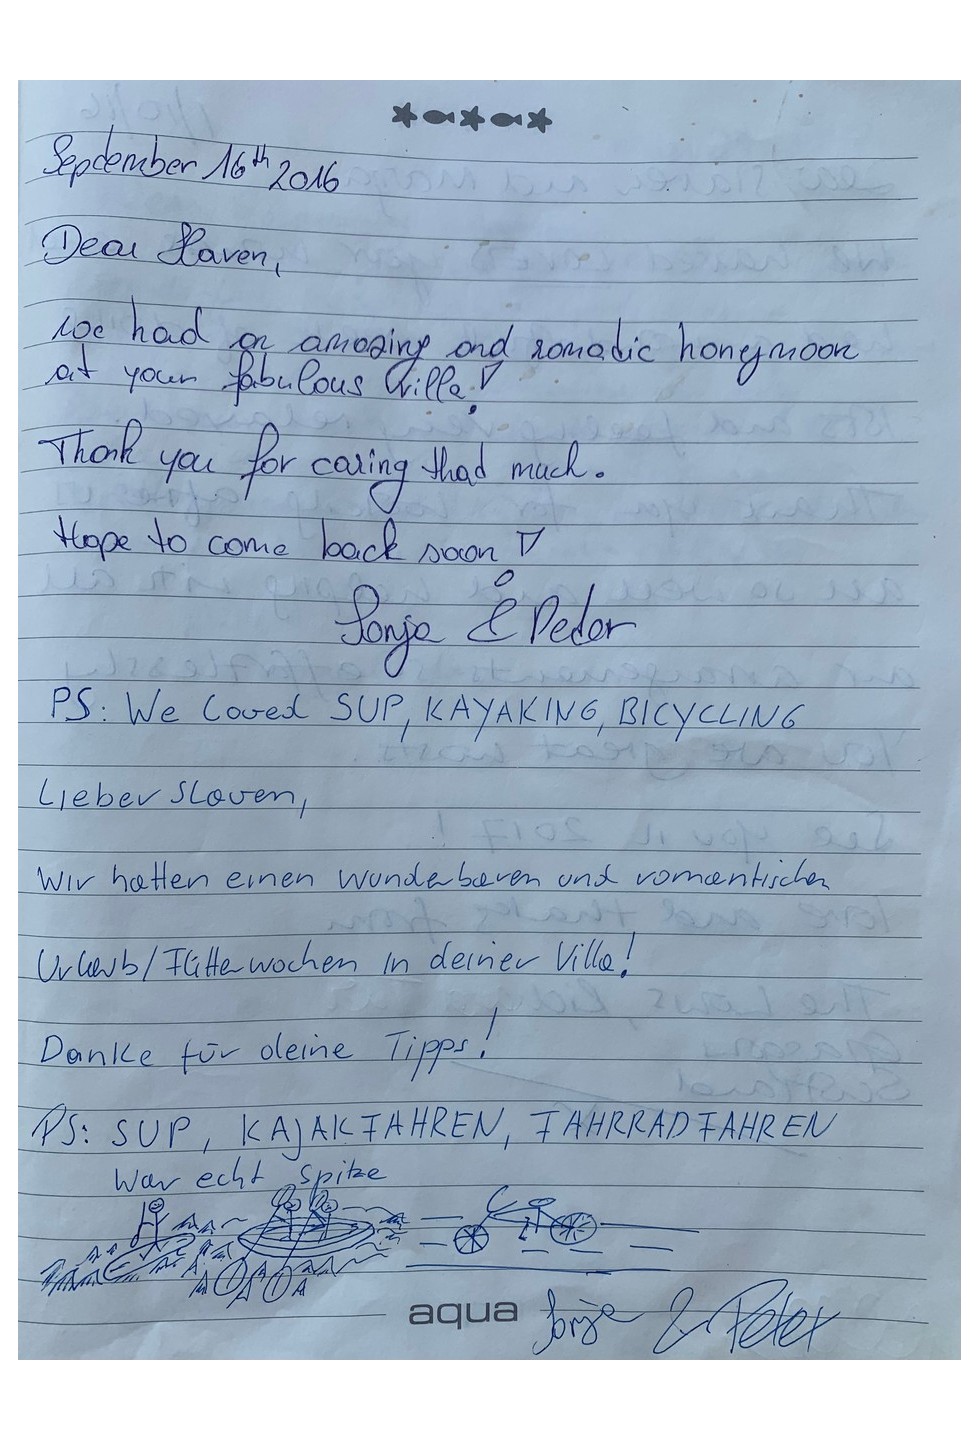 September 16th 2016
Dear Slaven,
we had an amazing and romadic honeymoon
at your fabulous Villa!
Thank you for caring thad much.
Hope to come back soon!
Sonja & Peter
PS: We loved SUP, KAYAKING, BICYCLING
Lieber Slaven,
Wir hatten einen wunderbaren und romantischen
Urlaub/Flitterwochen in deiner Villa!
Danke für deine Tipps!
PS: SUP, KAJAKFAHREN, FAHRRADFAHREN
War echt Spitze
aqua
Sonja & Peter